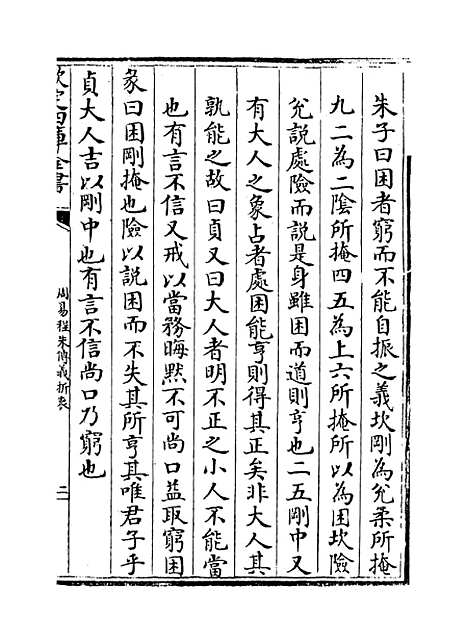 朱子曰困者窮而不能自振之義坎剛為兊柔所掩
九二為二隂所掩四五為上六所掩所以為困坎險
兊説處險而説是身雖困而道則亨也二五剛中又
有大人之象占者處困能亨則得其正矣非大人其
孰能之故曰貞又曰大人者明不正之小人不能當
也有言不信又戒以當務晦黙不可尚口益取窮困
彖曰困剛掩也險以説困而不失其所亨其唯君子乎
貞大人吉以剛中也有言不信尚口乃窮也
欽定四庫全書
周易程朱傳義折衷
二